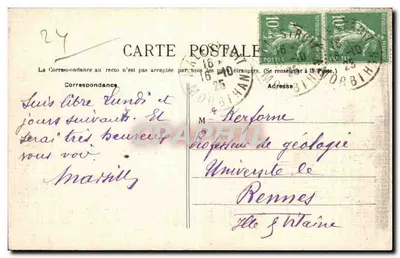 24
CARTE POSTALE
La Correspondance au recto n'est pas acceptée par tous les pays étrangers. (Se renseigner à la Poste).
Correspondance
Adresse
Suis libre lundi et
jours suivants. Et
serai très heureux
vous voir.
M Kerforne
Professeur de géologie
Université de
Rennes
Ille et Vilaine
MALESTROIT
16-10
25
MORBIHAN
10
10